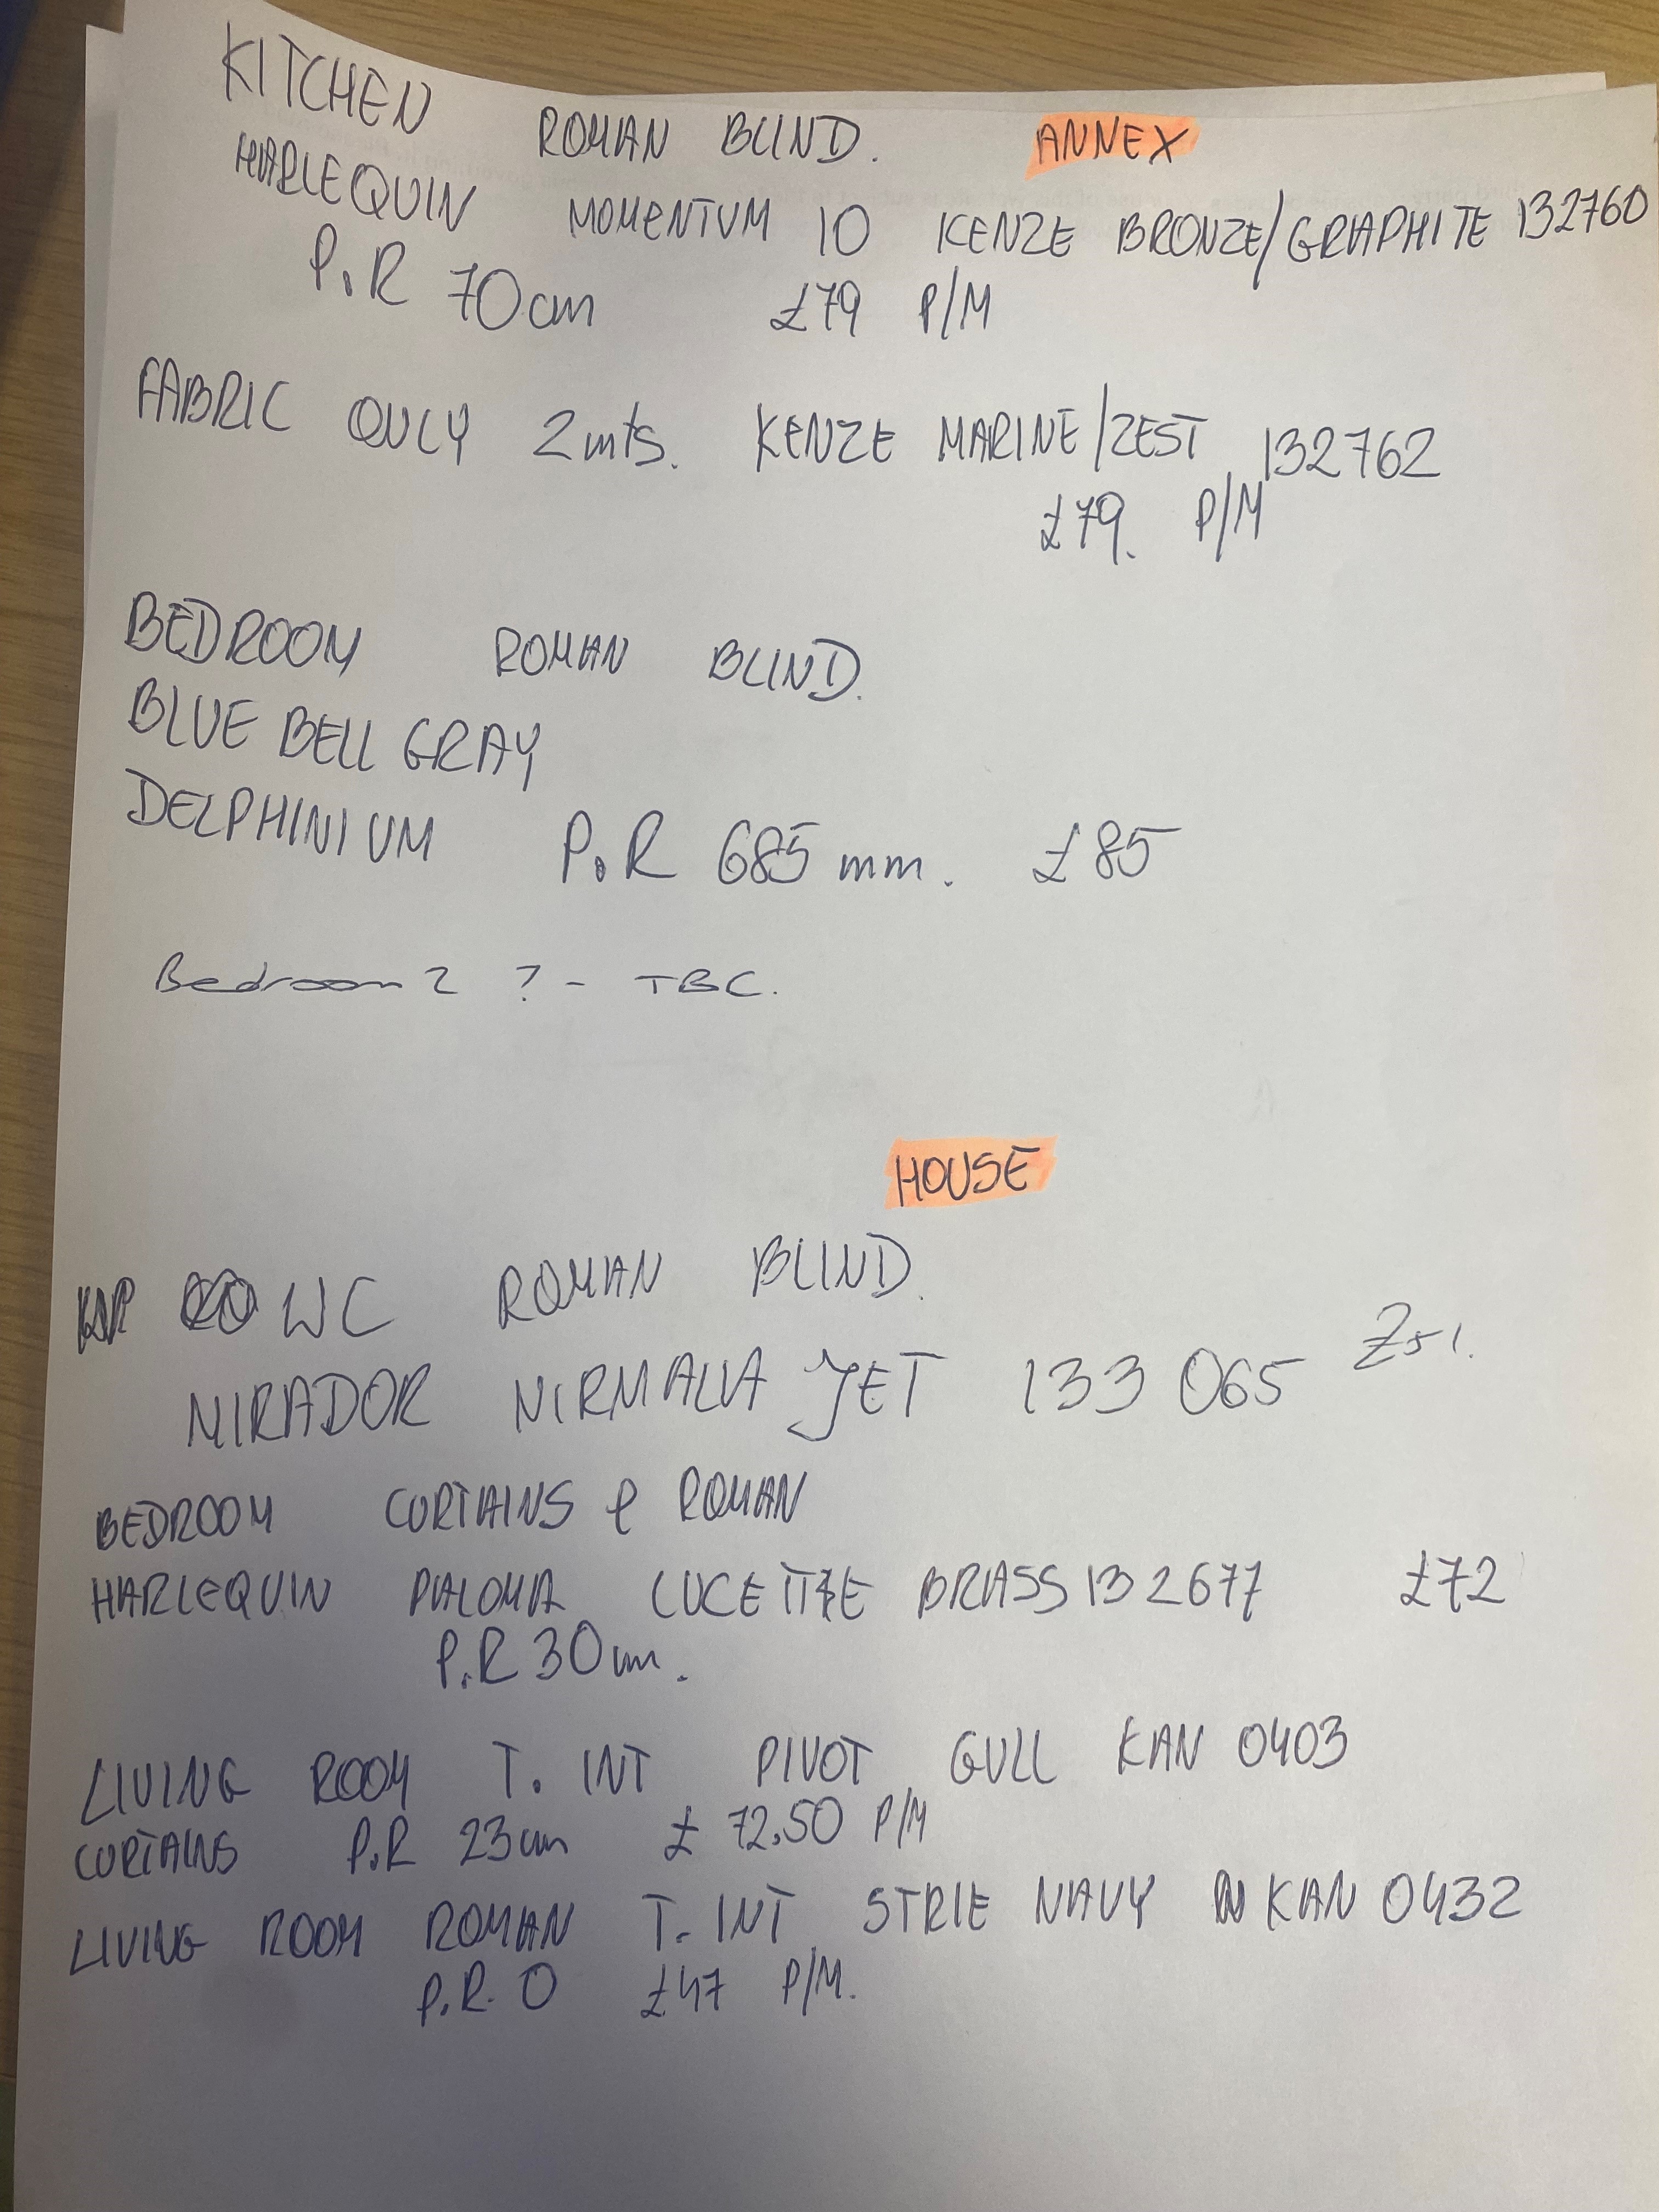 KITCHEN ROMAN BLIND. ANNEX
HARLEQUIN MOMENTUM 10 KENZE BRONZE/GRAPHITE 132760
P.R 70cm £79 P/M
FABRIC ONLY 2mts. KENZE MARINE/ZEST 132762
£79. P/M
BEDROOM ROMAN BLIND.
BLUE BELL GRAY
DELPHINIUM P.R 685mm. £85
Bedroom 2 ? - TBC.
HOUSE
WC ROMAN BLIND.
MIRADOR NIRMALA JET 133 065
BEDROOM CURTAINS & ROMAN
HARLEQUIN PALOMA LUCETTE BRASS 132677 £72
P.R 30cm.
LIVING ROOM T. INT PIVOT GULL KAN 0403
CURTAINS P.R 23cm £72.50 P/M
LIVING ROOM ROMAN T. INT STRIE NAVY KAN 0432
P.R. 0 £47 P/M.